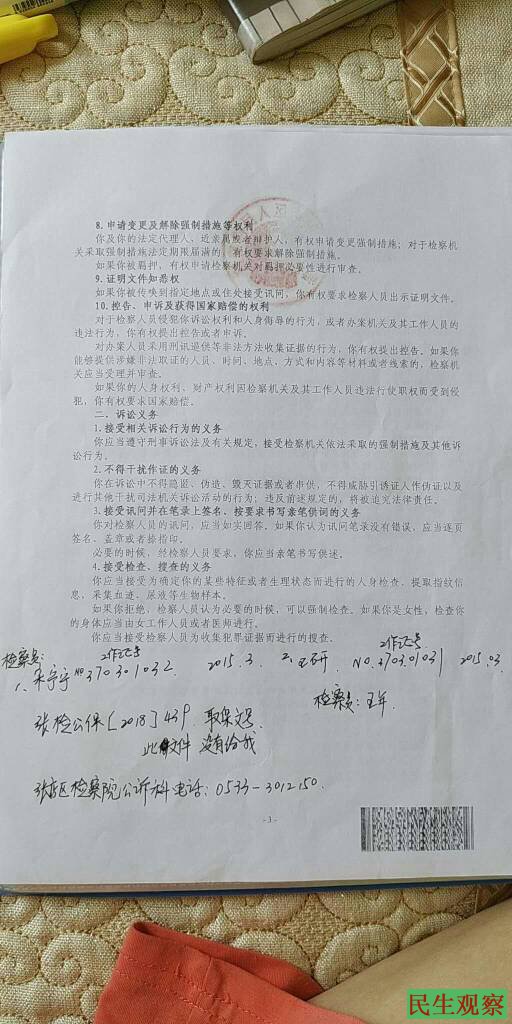 8.申请变更及解除强制措施等权利
你及你的法定代理人、近亲属或者辩护人,有权申请变更强制措施;对于检察机
关采取强制措施法定期限届满的,有权要求解除强制措施。
如果你被羁押,有权申请检察机关对羁押必要性进行审查。
9.证明文件知悉权
如果你被传唤到指定地点或住处接受讯问,你有权要求检察人员出示证明文件。
10.控告、申诉及获得国家赔偿的权利
对于检察人员侵犯你诉讼权利和人身侮辱的行为,或者办案机关及其工作人员的
违法行为,你有权提出控告或者申诉。
对办案人员采用刑讯逼供等非法方法收集证据的行为,你有权提出控告。如果你
能够提供涉嫌非法取证的人员、时间、地点、方式和内容等材料或者线索的,检察机
关应当受理并审查。
如果你的人身权利、财产权利因检察机关及其工作人员违法行使职权而受到侵
犯,你有权要求国家赔偿。
二、诉讼义务
1.接受相关诉讼行为的义务
你应当遵守刑事诉讼法及有关规定,接受检察机关依法采取的强制措施及其他诉
讼行为。
2.不得干扰作证的义务
你在诉讼中不得隐匿、伪造、毁灭证据或者串供,不得威胁引诱证人作伪证以及
进行其他干扰司法机关诉讼活动的行为;违反前述规定的,将被追究法律责任。
3.接受讯问并在笔录上签名、按要求书写亲笔供词的义务
你对检察人员的讯问,应当如实回答。如果你认为讯问笔录没有错误,应当逐页
签名、盖章或者捺指印。
必要的时候,经检察人员要求,你应当亲笔书写供述。
4.接受检查、搜查的义务
你应当接受为确定你的某些特征或者生理状态而进行的人身检查、提取指纹信
息,采集血迹、尿液等生物样本。
如果你拒绝,检察人员认为必要的时候,可以强制检查。如果你是女性,检查你
的身体应当由女工作人员或者医师进行。
你应当接受检察人员为收集犯罪证据而进行的搜查。
检察员: 工作证号 工作证号
1、宁宁 NO 370301032 2015.3. 2、研 NO.37030103 2015.03
检察员:王军
张检公保[2018]439 取保文号
此文件 没有给我
张店区检察院公诉科电话:0533-3012150.
-3-
民生观察